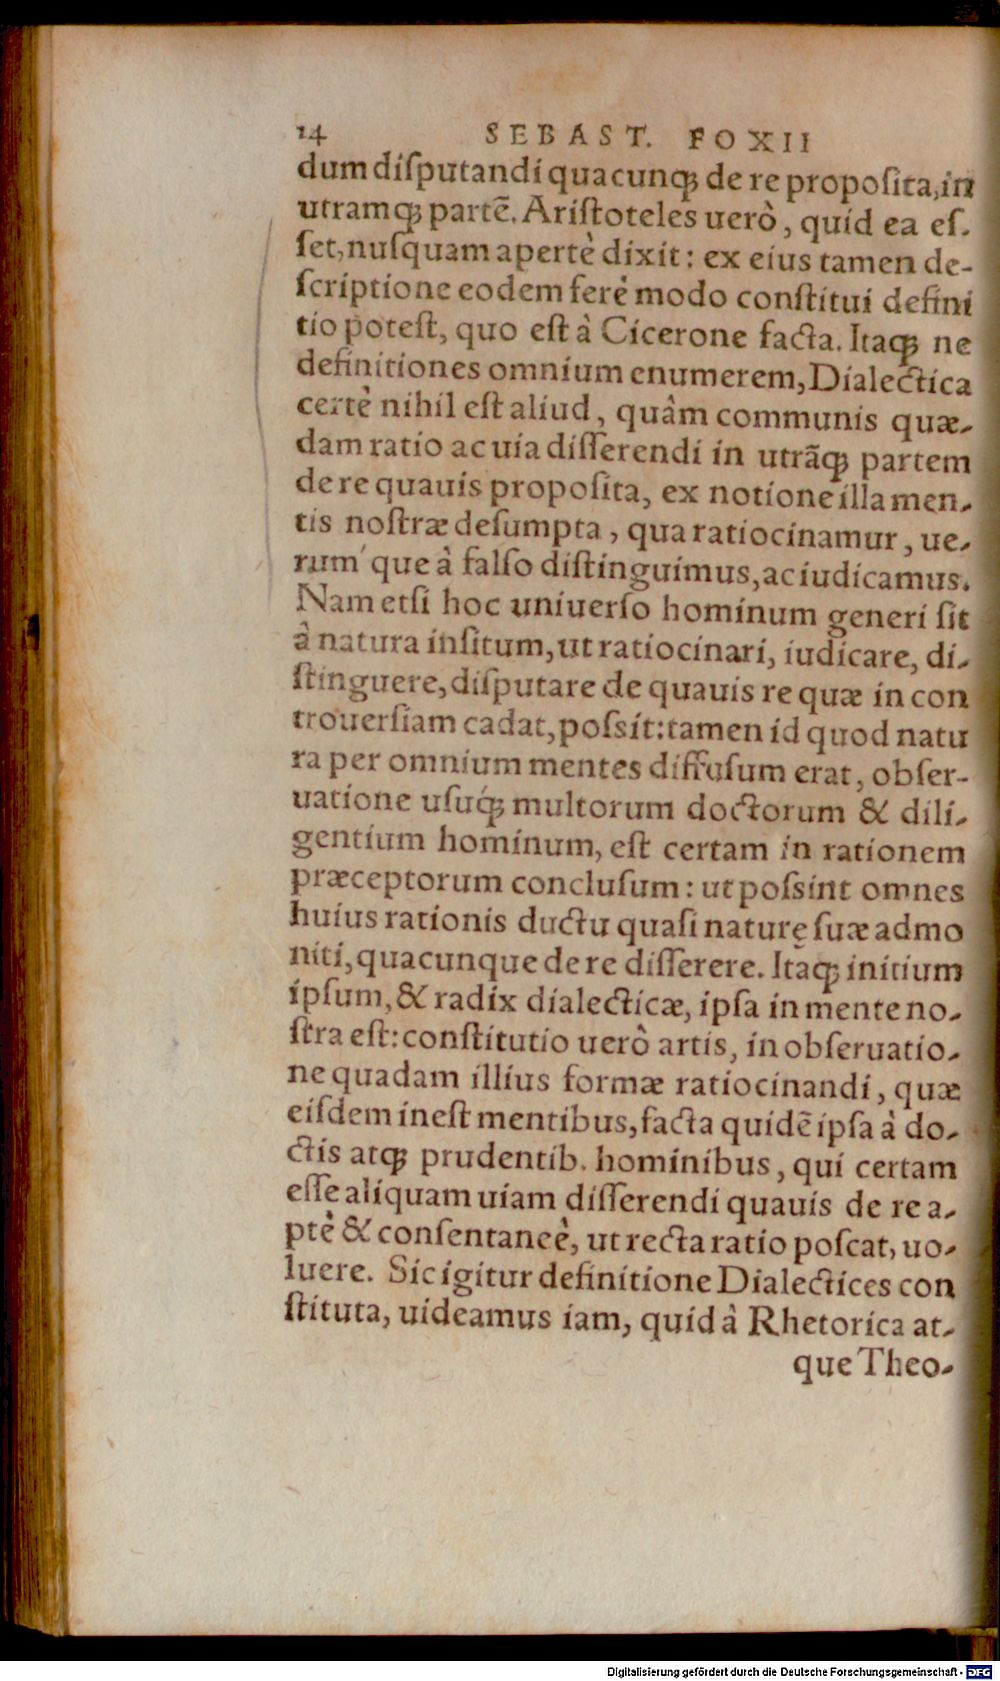 14 SEBAST. FOXII
dum diſputandi quacunq; de re propoſita, in
utramq; partē. Ariſtoteles uerò, quid ea eſ-
ſet, nuſquam apertè dixit: ex eius tamen de-
ſcriptione eodem ferè modo conſtitui defini
tio poteſt, quo eſt à Cicerone facta. Itaq; ne
definitiones omnium enumerem, Dialectica
certè nihil eſt aliud, quàm communis quæ-
dam ratio ac uia diſſerendi in utrāq; partem
de re quauis propoſita, ex notione illa men-
tis noſtræ deſumpta, qua ratiocinamur, ue-
rum´que à falſo diſtinguimus, ac iudicamus.
Nam etſi hoc uniuerſo hominum generi ſit
à natura inſitum, ut ratiocinari, iudicare, di-
ſtinguere, diſputare de quauis re quæ in con
trouerſiam cadat, poſsit: tamen id quod natu
ra per omnium mentes diffuſum erat, obſer-
uatione uſuq́; multorum doctorum & dili-
gentium hominum, eſt certam in rationem
præceptorum concluſum: ut poſsint omnes
huius rationis ductu quaſi naturę ſuæ admo
niti, quacunque de re diſſerere. Itaq; initium
ipſum, & radix dialecticæ, ipſa in mente no-
ſtra eſt: conſtitutio uerò artis, in obſeruatio-
ne quadam illius formæ ratiocinandi, quæ
eiſdem ineſt mentibus, facta quidē ipſa à do-
ctis atq; prudentib. hominibus, qui certam
eſſe aliquam uiam diſſerendi quauis de re a-
ptè & conſentaneè, ut recta ratio poſcat, uo-
luere. Sic igitur definitione Dialectices con
ſtituta, uideamus iam, quid à Rhetorica at-
que Theo-
Digitalisierung gefördert durch die Deutsche Forschungsgemeinschaft - DFG